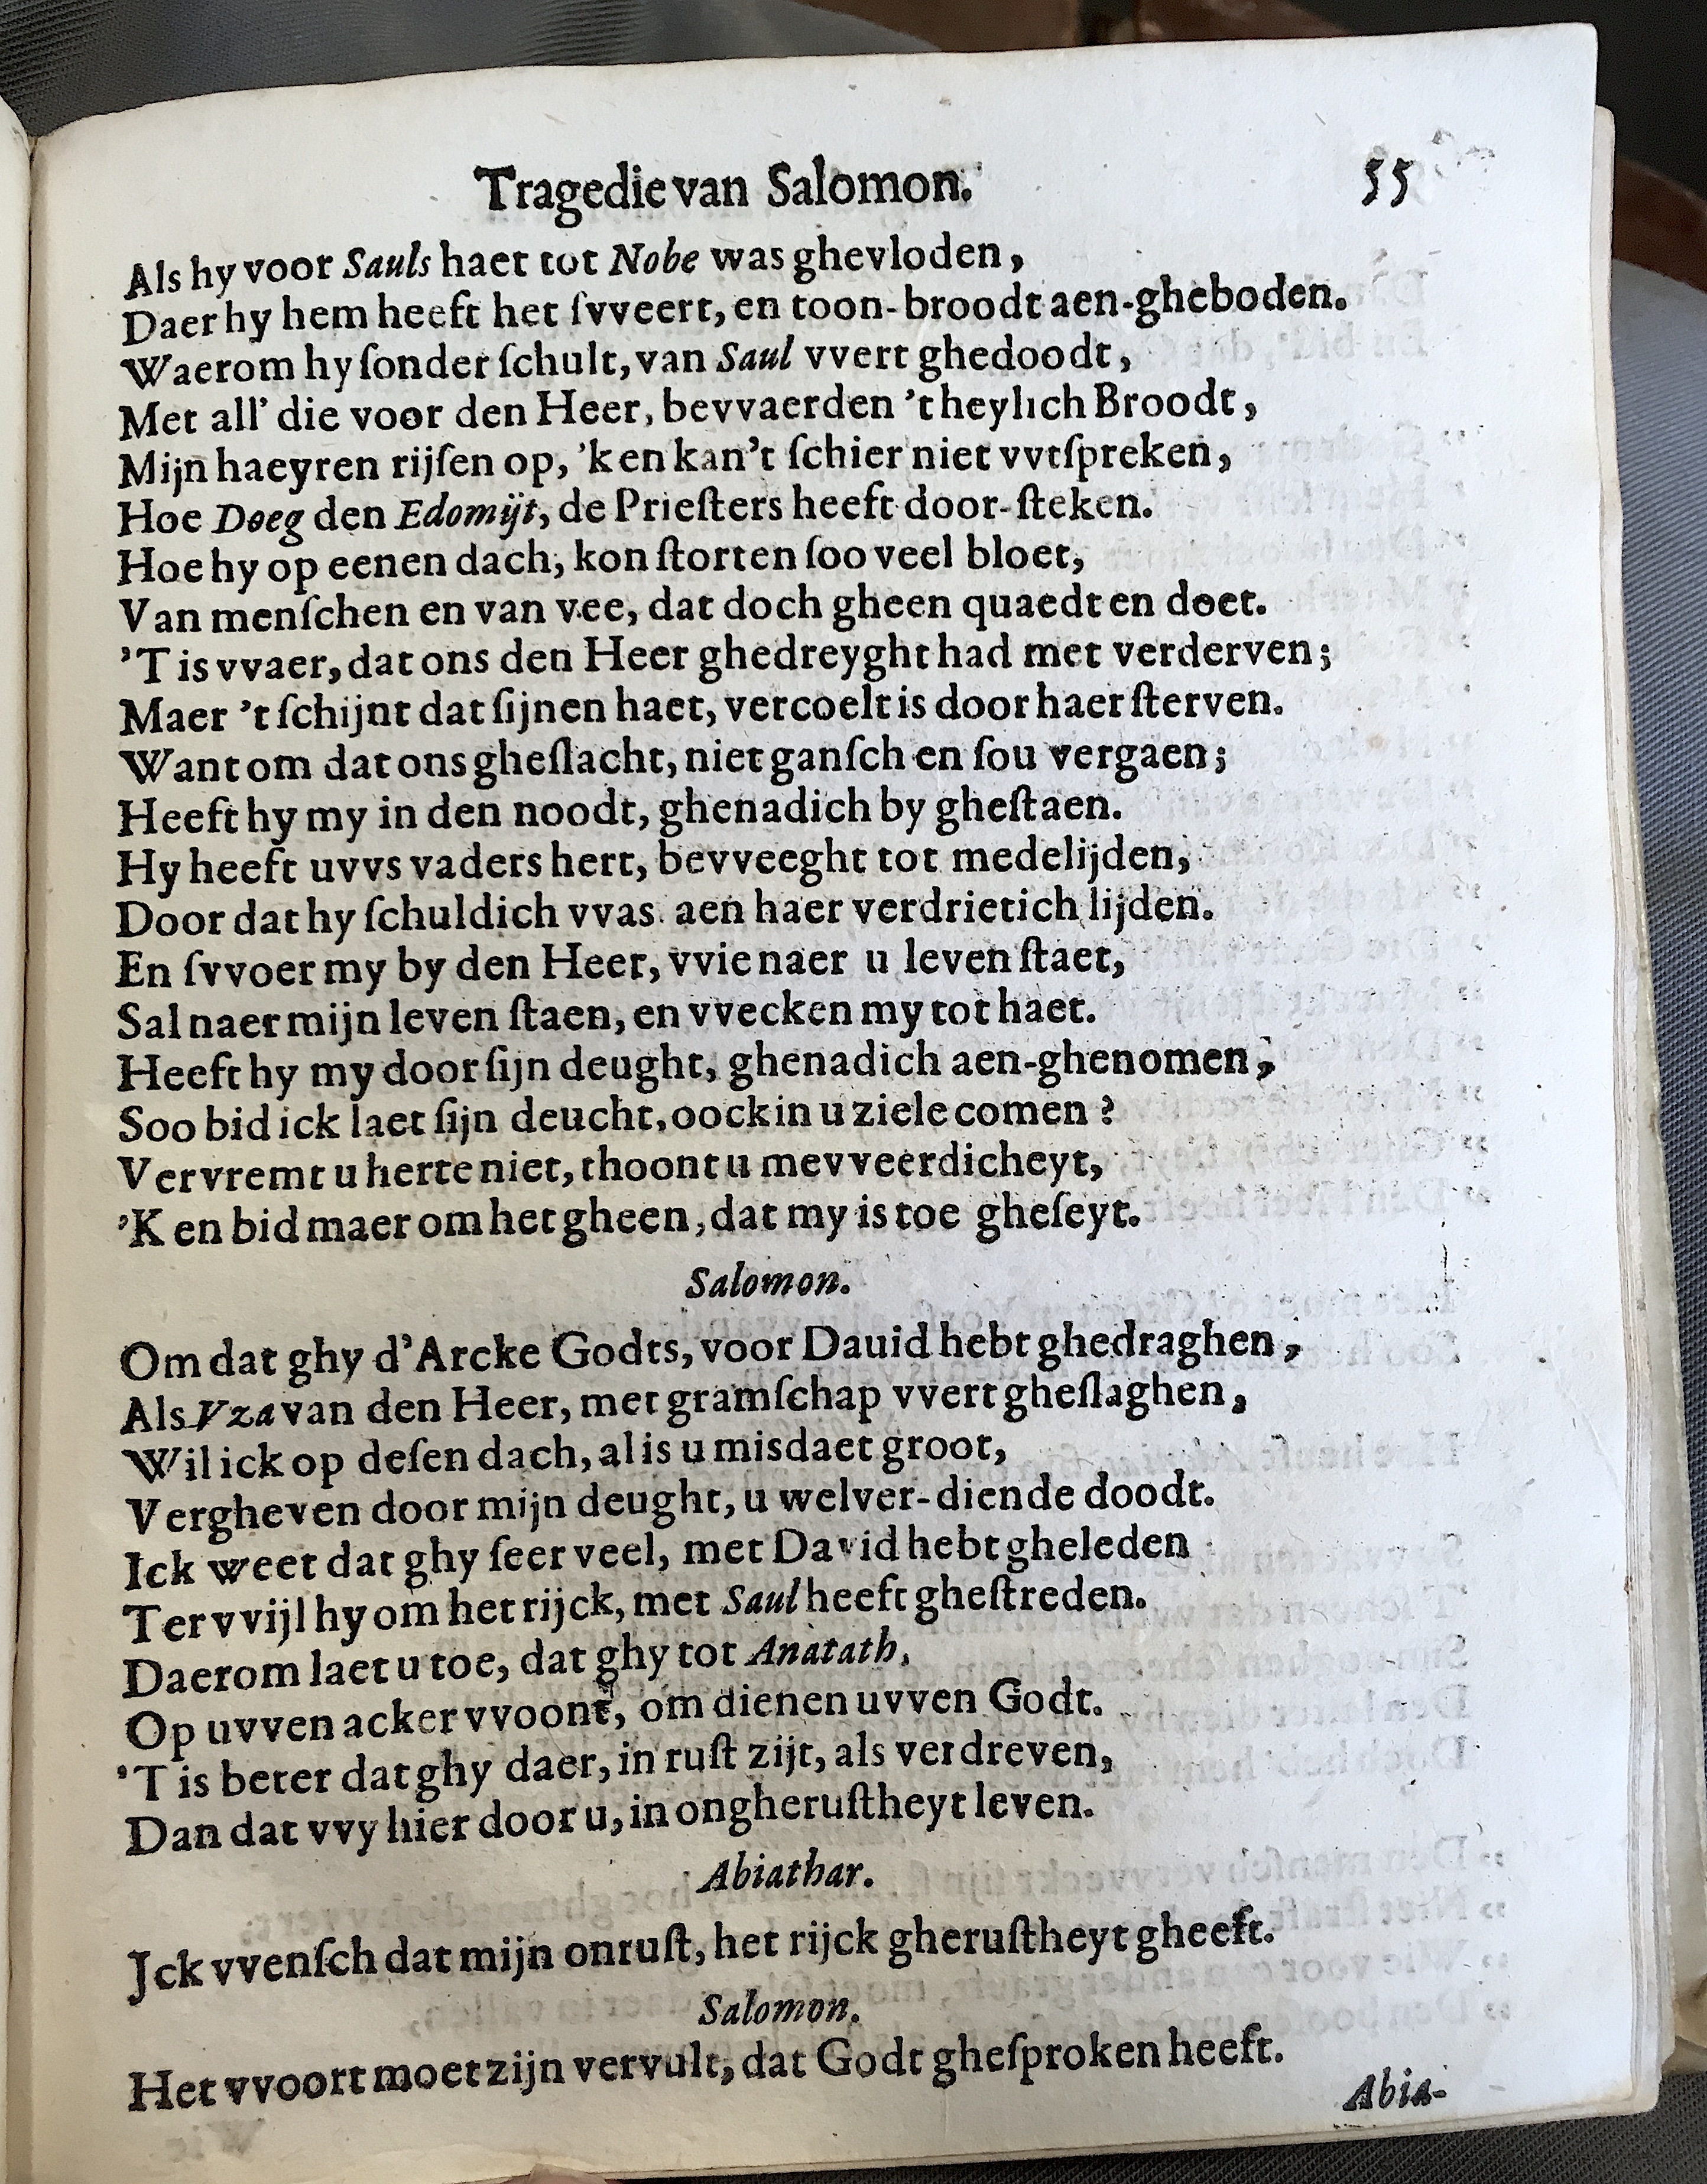 Tragedie van Salomon. 55
Als hy voor Sauls haet tot Nobe was ghevloden,
Daer hy hem heeft het ſvveert, en toon-broodt aen-gheboden.
Waerom hy ſonder ſchult, van Saul vvert ghedoodt,
Met all' die voor den Heer, bevvaerden 't heylich Broodt,
Mijn haeyren rijſen op, 'k en kan't ſchier niet vvtſpreken,
Hoe Doeg den Edomijt, de Prieſters heeft door-ſteken.
Hoe hy op eenen dach, kon ſtorten ſoo veel bloet,
Van menſchen en van vee, dat doch gheen quaedt en doet.
'T is vvaer, dat ons den Heer ghedreyght had met verderven;
Maer 't ſchijnt dat ſijnen haet, vercoelt is door haer ſterven.
Want om dat ons gheſlacht, niet ganſch en ſou vergaen;
Heeft hy my in den noodt, ghenadich by gheſtaen.
Hy heeft uvvs vaders hert, bevveeght tot medelijden,
Door dat hy ſchuldich vvas. aen haer verdrietich lijden.
En ſvvoer my by den Heer, vvie naer u leven ſtaet,
Sal naer mijn leven ſtaen, en vvecken my tot haet.
Heeft hy my door ſijn deught, ghenadich aen-ghenomen,
Soo bid ick laet ſijn deucht, oock in u ziele comen ?
Vervremt u herte niet, thoont u mevveerdicheyt,
'K en bid maer om het gheen, dat my is toe gheſeyt.
Salomon.
Om dat ghy d'Arcke Godts, voor Dauid hebt ghedraghen,
Als Vza van den Heer, met gramſchap vvert gheſlaghen,
Wil ick op deſen dach, al is u misdaet groot,
Vergheven door mijn deught, u welver-diende doodt.
Ick weet dat ghy ſeer veel, met David hebt gheleden
Ter vvijl hy om het rijck, met Saul heeft gheſtreden.
Daerom laet u toe, dat ghy tot Anatath,
Op uvven acker vvoont, om dienen uvven Godt.
'T is beter dat ghy daer, in ruſt zijt, als verdreven,
Dan dat vvy hier door u, in ongheruſtheyt leven.
Abiathar.
Jck vvenſch dat mijn onruſt, het rijck gheruſtheyt gheeft.
Salomon.
Het vvoort moet zijn vervult, dat Godt gheſproken heeft.
Abia-